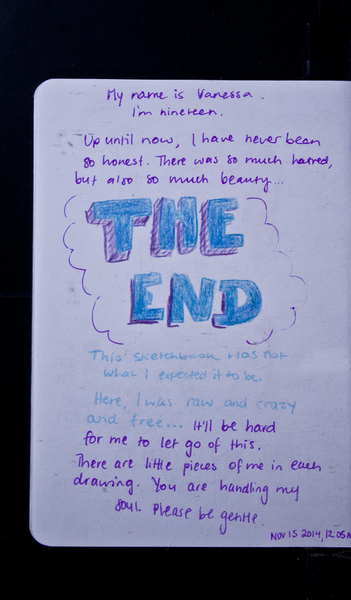 My name is Vanessa.
I'm nineteen.
Up until now, I have never been
so honest. There was so much hatred,
but also so much beauty...
THE
END
This sketchbook was not
what I expected it to be.
Here, I was raw and crazy
and free... It'll be hard
for me to let go of this.
There are little pieces of me in each
drawing. You are handling my
soul. Please be gentle.
NOV 15 2014, 12:05A